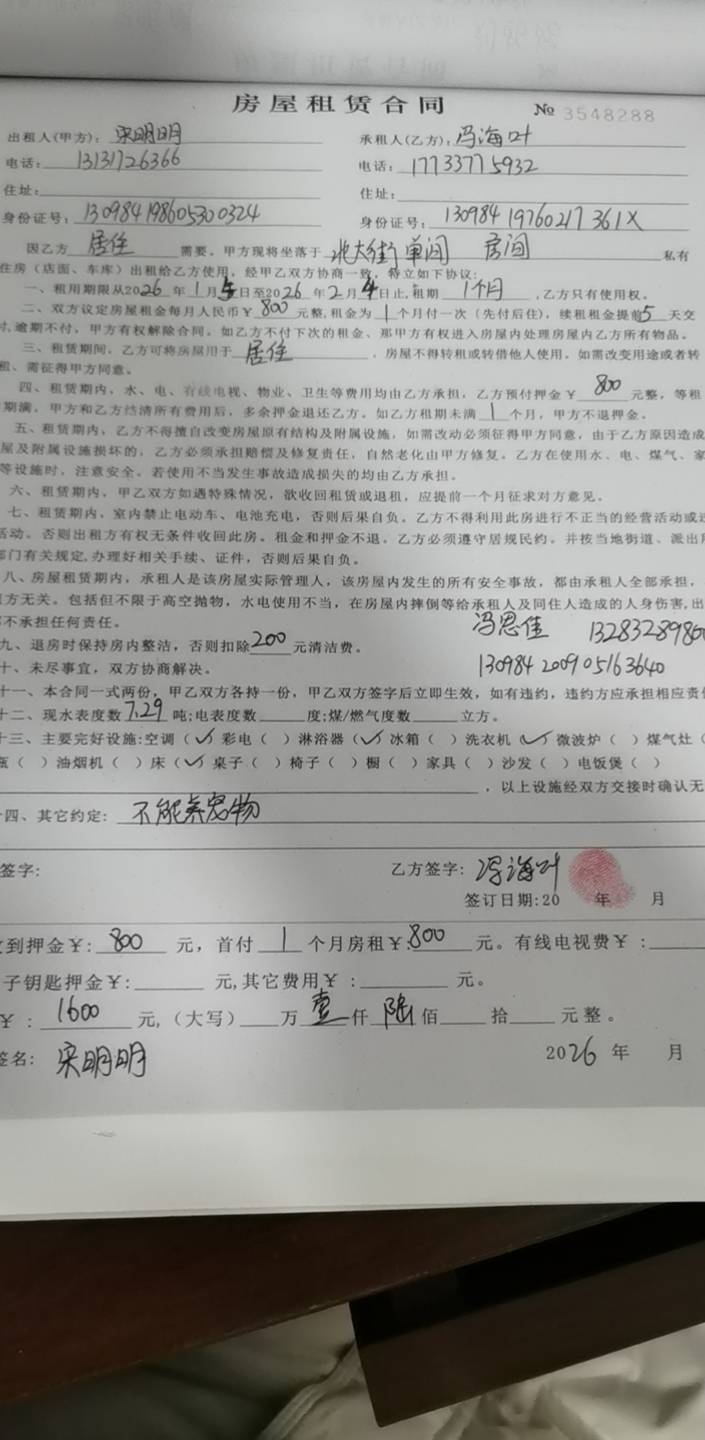 房屋租赁合同 № 3548288
出租人(甲方): 宋明明 承租人(乙方): 冯海叶
电话: 13131726366 电话: 17733775932
住址: 住址:
身份证号: 130984198605300324 身份证号: 13098419760217361X
因乙方 居住 需要。甲方现将坐落于 北大街 单间 房间 私有
住房(店面、车库)出租给乙方使用,经甲乙双方协商一致,特立如下协议:
一、租用期限从2026年1月5日至2026年2月4日止,租期 1个月 ,乙方只有使用权。
二、双方议定房屋租金每月人民币¥800元整,租金为1个月付一次(先付后住),续租租金提前5天交
付,逾期不付,甲方有权解除合同。如乙方不付下次的租金、那甲方有权进入房屋内处理房屋内乙方所有物品。
三、租赁期间,乙方可将房屋用于 居住 ,房屋不得转租或转借他人使用。如需改变用途或者转
租、需征得甲方同意。
四、租赁期内,水、电、有线电视、物业、卫生等费用均由乙方承担,乙方预付押金¥ 800 元整,等租
期满,甲方和乙方结清所有费用后,多余押金退还乙方。如乙方租期未满 1 个月,甲方不退押金。
五、租赁期内,乙方不得擅自改变房屋原有结构及附属设施,如需改动必须征得甲方同意,由于乙方原因造成
屋及附属设施损坏的,乙方必须承担赔偿及修复责任,自然老化由甲方修复。乙方在使用水、电、煤气、家
等设施时,注意安全。若使用不当发生事故造成损失的均由乙方承担。
六、租赁期内,甲乙双方如遇特殊情况,欲收回租赁或退租,应提前一个月征求对方意见。
七、租赁期内,室内禁止电动车、电池充电,否则后果自负。乙方不得利用此房进行不正当的经营活动或违
活动。否则出租方有权无条件收回此房。租金和押金不退。乙方必须遵守居规民约。并按当地街道、派出所
部门有关规定,办理好相关手续、证件,否则后果自负。
八、房屋租赁期内,承租人是该房屋实际管理人,该房屋内发生的所有安全事故,都由承租人全部承担,
租方无关。包括但不限于高空抛物,水电使用不当,在房屋内摔倒等给承租人及同住人造成的人身伤害,出
不承担任何责任。
冯思佳 13283289800
九、退房时保持房内整洁,否则扣除200元清洁费。
130984200905163640
十、未尽事宜,双方协商解决。
十一、本合同一式两份,甲乙双方各持一份,甲乙双方签字后立即生效,如有违约,违约方应承担相应责任
十二、现水表度数7.29吨;电表度数 度;煤/燃气度数 立方。
十三、主要完好设施:空调(✓)彩电( )淋浴器(✓)冰箱( )洗衣机(✓)微波炉( )煤气灶(
瓶( )油烟机( )床(✓)桌子( )椅子( )橱( )家具( )沙发( )电饭煲( )
,以上设施经双方交接时确认无
十四、其它约定: 不能养宠物
签字: 乙方签字: 冯海叶
签订日期:20 年 月
收到押金¥: 800 元,首付 1 个月房租¥:800 元。有线电视费¥:
子钥匙押金¥: 元,其它费用¥: 元。
¥: 1600 元,(大写) 万 壹 仟 陆 佰 拾 元整。
签名: 宋明明 2026年 月